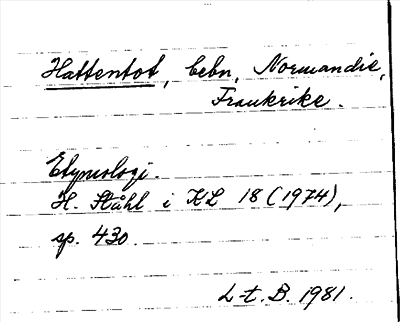 Hattentot, bebn, Normandie,
Frankrike.
Etymologi.
H. Ståhl i KL 18 (1974),
sp. 430.
L-t. B. 1981.